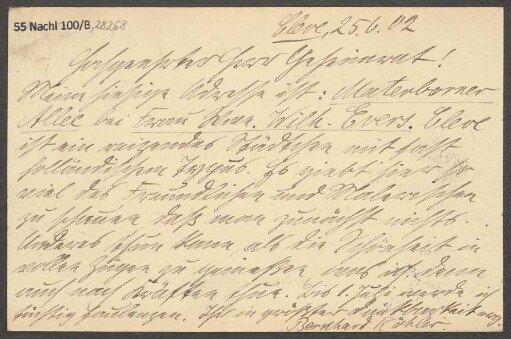 55 Nachl 100/B,28268
Cleve, 25.6.02
Hochgeehrter Herr Geheimrat!
Meine hiesige Adresse ist: Materborner
Allée bei Frau Wilh. Evers. Cleve
ist ein reizendes Städtchen mit fast
holländischem Typus. Es giebt hier so
viel des Freundlichen und Malerischen
zu schauen daß man zunächst nichts
Anderes thun kann, als die Schönheit in
vollen Zügen zu genießen, was ich denn
auch nach Kräften thue. Bis 1. Juli werde ich
tüchtig faullenzen. Ihr in größter Dankbarkeit erg.
Bernhard Köhler.